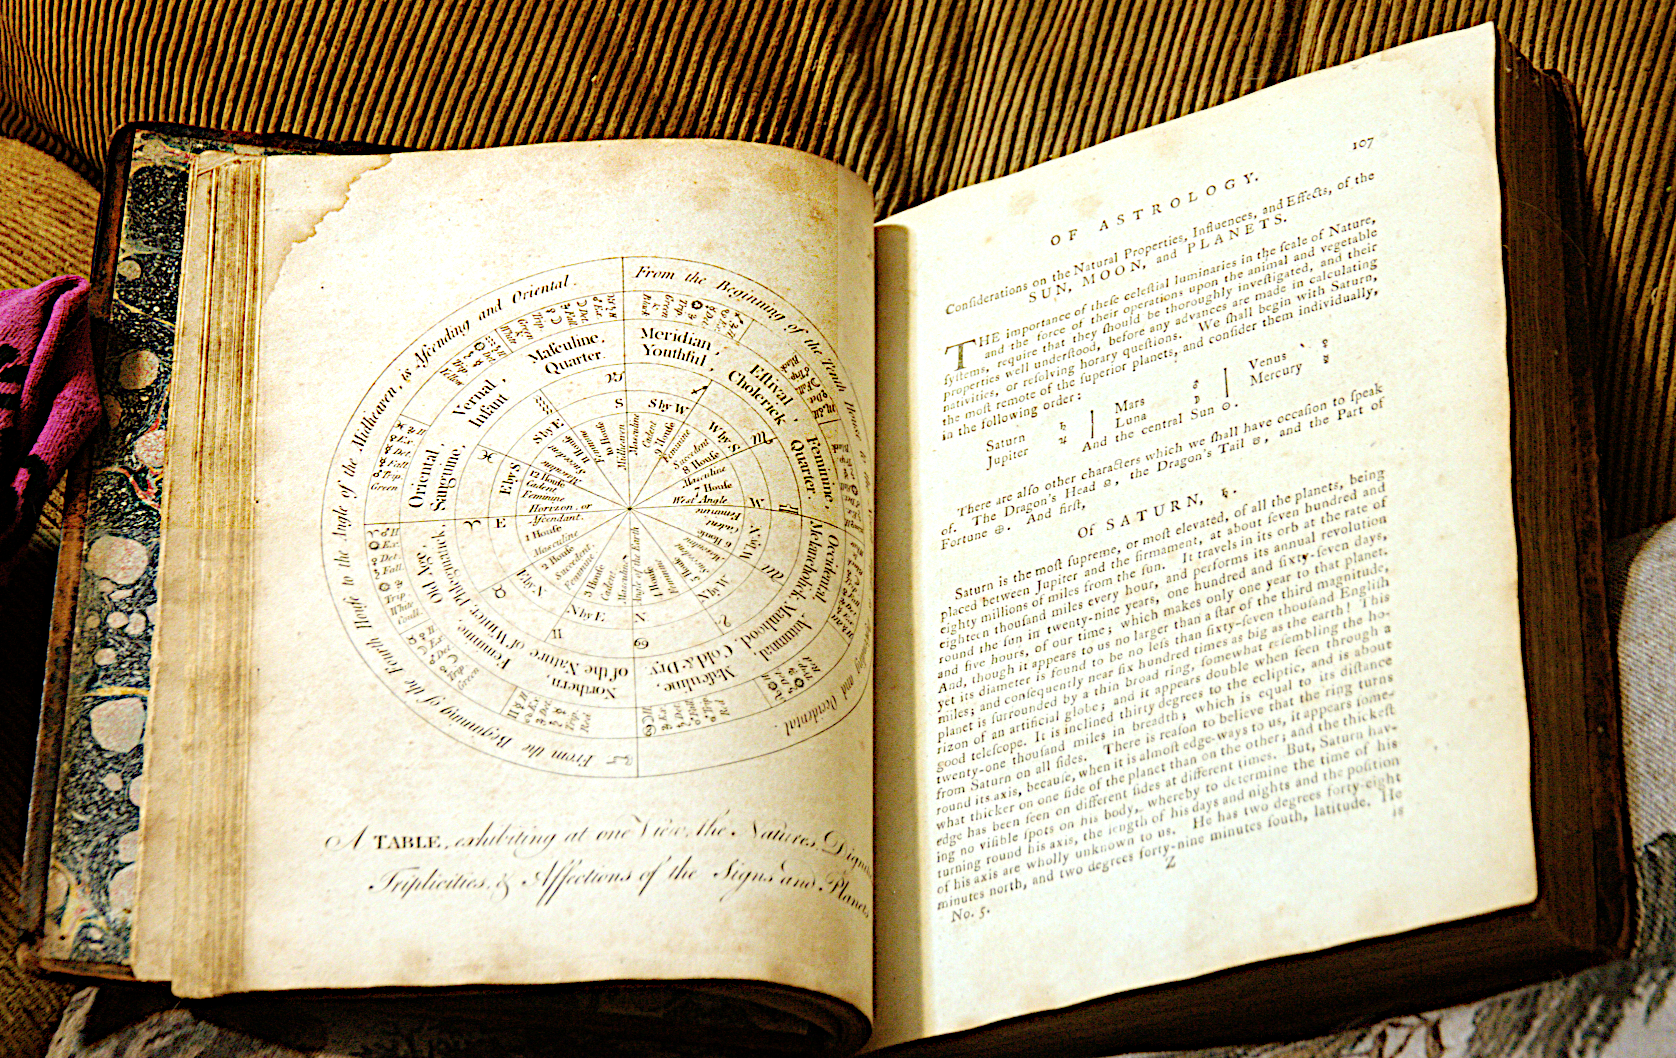 From the Beginning of the Tenth House
is Ascending and Oriental.
Fourth House to the Angle of the Midheaven,
From the Beginning of the
and Occidental.
Meridian,
Youthful,
Estival,
Cholerick
Feminine,
Quarter.
Occidental,
Melancholick,
Manhood,
Autumnal,
Cold & Dry.
Masculine,
Northern,
of the Nature
of Winter,
Feminine,
Phlegmatick,
Old Age,
Oriental,
Sanguine,
Vernal,
Infant
Masculine,
Quarter.
S
S by W.
W by S.
W
W by N.
N by W
N
N by E
E by N.
E
E by S.
S by E.
Horizon, or
Ascendant.
1 House
Masculine
2 House
Succedent.
Feminine
3 House
Cadent
Masculine
Angle of the Earth
West Angle
7 House
Masculine
8 House
Succedent
Feminine
9 House
Cadent
Masculine
Midheaven
10 House
Feminine
12 House
Cadent
Feminine
A TABLE, exhibiting at one View, the Natures, Dign
Triplicities, & Affections of the Signs and Planets
107
OF ASTROLOGY.
Conſiderations on the Natural Properties, Influences, and Effects, of the
SUN, MOON, and PLANETS.
THE importance of theſe celeſtial luminaries in the ſcale of Nature,
and the force of their operations upon the animal and vegetable
ſyſtems, require that they ſhould be thoroughly inveſtigated, and their
properties well underſtood, before any advances are made in calculating
nativities, or reſolving horary queſtions. We ſhall begin with Saturn,
the moſt remote of the superior planets, and conſider them individually,
in the following order:
Saturn ♄ Mars ♂ Venus ♀
Jupiter ♃ Luna ☽ Mercury ☿
And the central Sun ☉.
There are alſo other characters which we ſhall have occaſion to ſpeak
of. The Dragon's Head ☊, the Dragon's Tail ☋, and the Part of
Fortune ⊕. And firſt,
Of SATURN, ♄.
Saturn is the moſt ſupreme, or moſt elevated, of all the planets, being
placed between Jupiter and the firmament, at about ſeven hundred and
eighty millions of miles from the ſun. It travels in its orb at the rate of
eighteen thouſand miles every hour, and performs its annual revolution
round the ſun in twenty-nine years, one hundred and ſixty-ſeven days,
and five hours, of our time; which makes only one year to that planet.
And, though it appears to us no larger than a ſtar of the third magnitude,
yet its diameter is found to be no leſs than ſixty-ſeven thouſand Engliſh
miles; and conſequently near ſix hundred times as big as the earth! This
planet is ſurrounded by a thin broad ring, ſomewhat reſembling the ho-
rizon of an artificial globe; and it appears double when ſeen through a
good teleſcope. It is inclined thirty degrees to the ecliptic, and is about
twenty-one thouſand miles in breadth; which is equal to its diſtance
from Saturn on all ſides. There is reaſon to believe that the ring turns
round its axis, becauſe, when it is almoſt edge-ways to us, it appears ſome-
what thicker on one ſide of the planet than on the other; and the thickeſt
edge has been ſeen on different ſides at different times. But, Saturn hav-
ing no viſible ſpots on his body, whereby to determine the time of his
turning round his axis, the length of his days and nights and the poſition
of his axis are wholly unknown to us. He has two degrees forty-eight
minutes north, and two degrees forty-nine minutes ſouth, latitude. He
No. 5. Z is